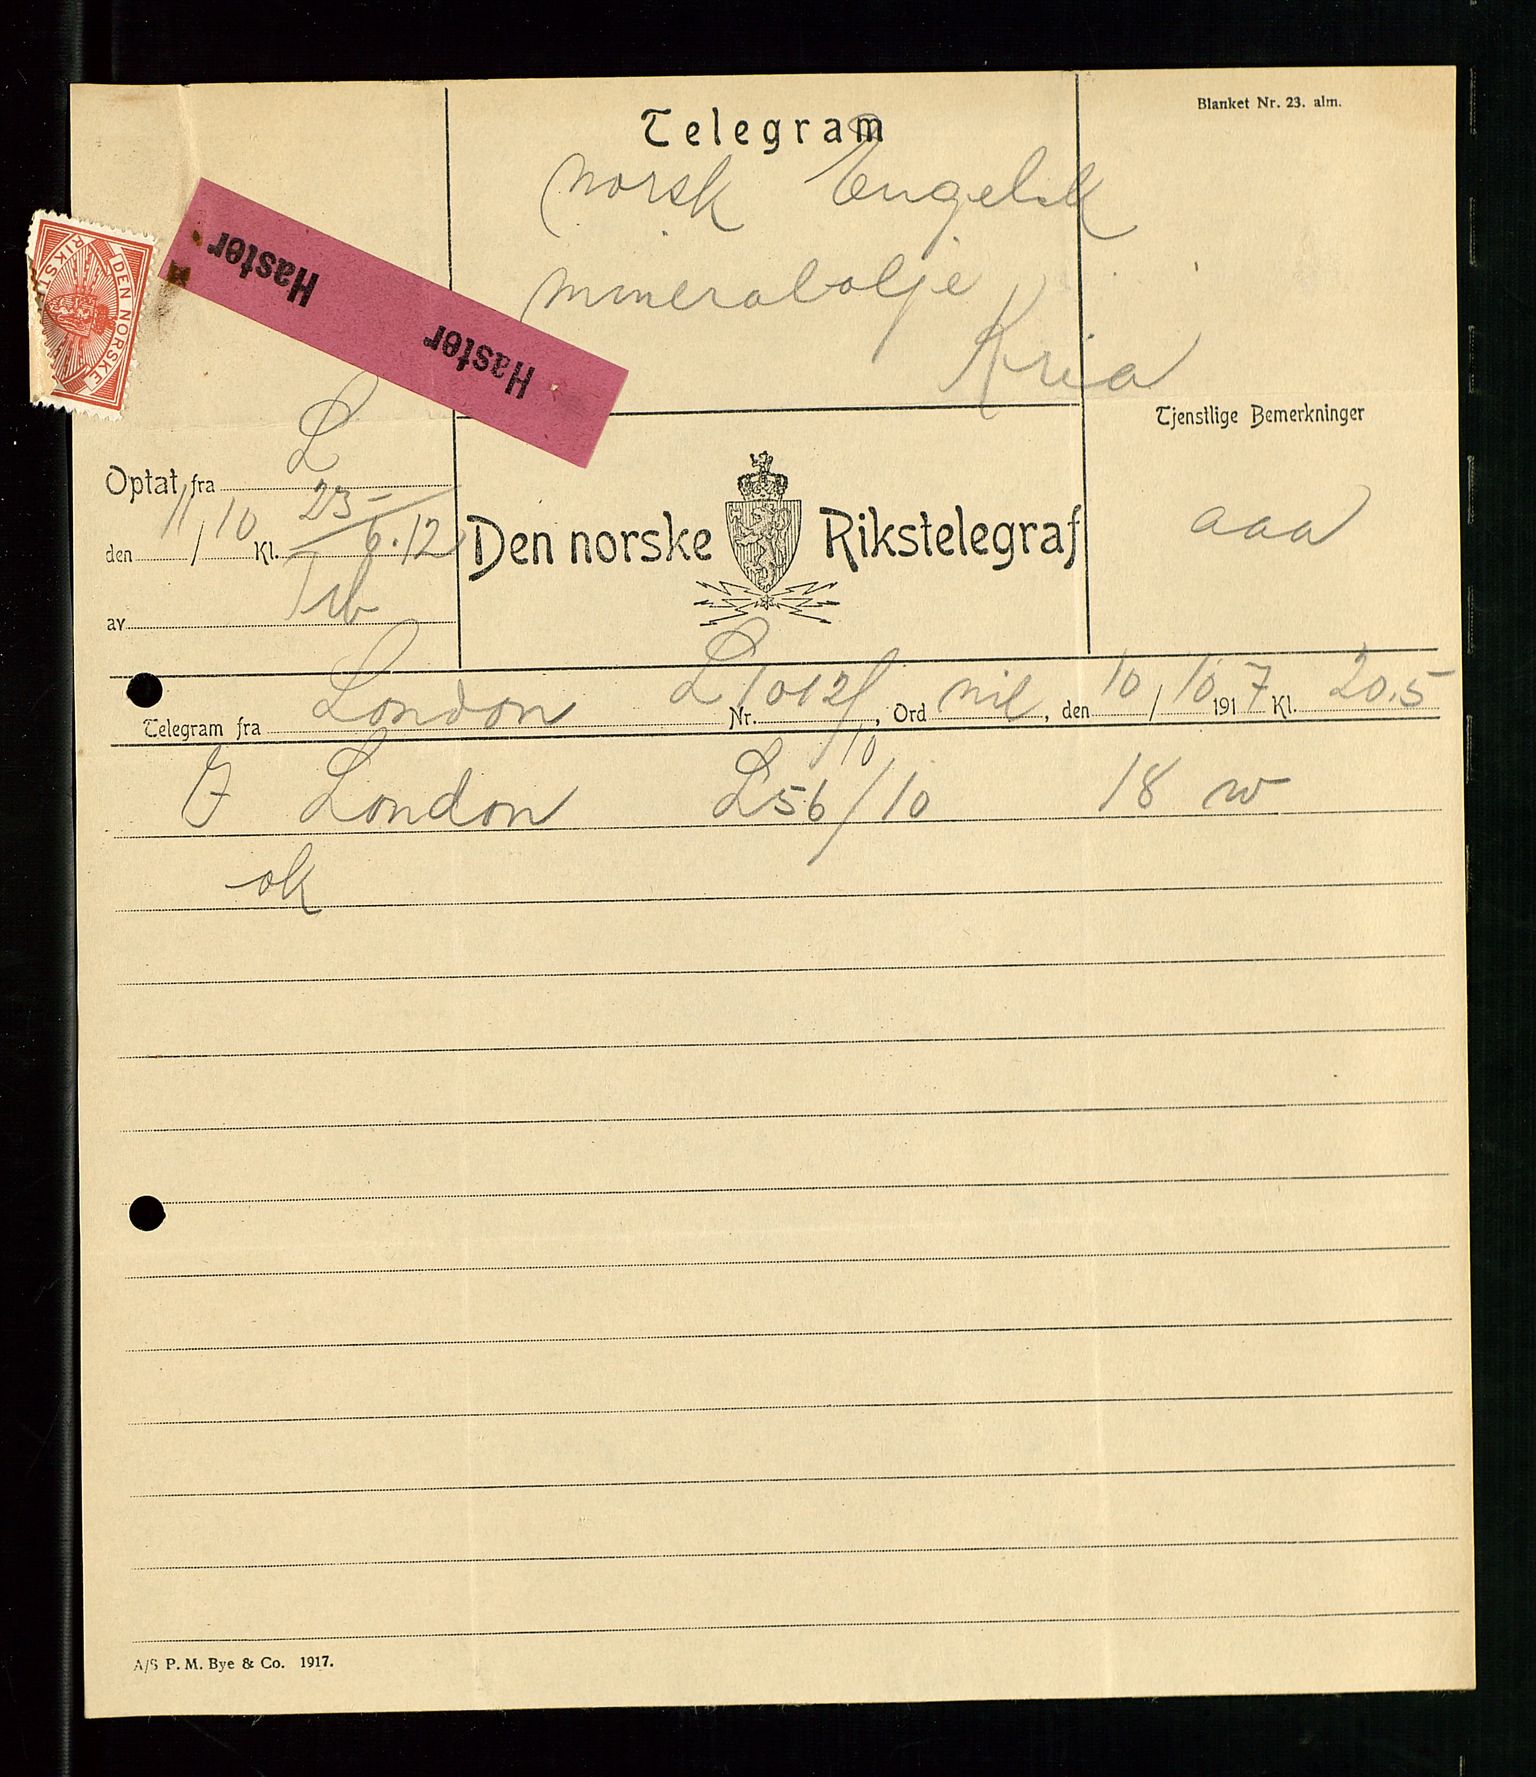 Blanket Nr. 23. alm.
Telegram
norsk Engelsk
mineralolje
Kria
Haster Haster
DEN NORSKE RIKST
Tjenstlige Bemerkninger
aaa
Optat fra L
den 11/10 Kl. 23- 6.12
av
Den norske Rikstelegraf
Telegram fra London Nr. L1012/10, Ord nil, den 10/10 1917 Kl. 20.5
London L56/10 18 w
ok
A/S P. M. Bye & Co. 1917.